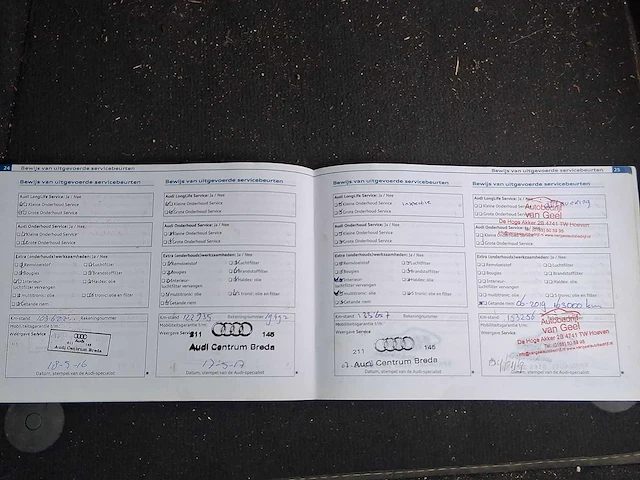 24
Bewijs van uitgevoerde servicebeurten
Bewijs van uitgevoerde servicebeurten
Audi LongLife Service: Ja / Nee
Kleine Onderhoud Service
Grote Onderhoud Service
Audi Onderhoud Service: Ja / Nee
Kleine Onderhoud Service
Grote Onderhoud Service
Extra (onderhouds)werkzaamheden: Ja / Nee
Remvloeistof
Luchtfilter
Bougies
Brandstoffilter
Interieur-
Haldex: olie
luchtfilter vervangen
multitronic: olie
S tronic: olie en filter
Getande riem
Km-stand
Rekeningnummer
Mobiliteitsgarantie t/m:
Weergave Service
Audi
Audi Centrum Breda
18-5-16
Datum, stempel van de Audi-specialist
Bewijs van uitgevoerde servicebeurten
Audi LongLife Service: Ja / Nee
Kleine Onderhoud Service
Grote Onderhoud Service
Audi Onderhoud Service: Ja / Nee
Kleine Onderhoud Service
Grote Onderhoud Service
Extra (onderhouds)werkzaamheden: Ja / Nee
Remvloeistof
Luchtfilter
Bougies
Brandstoffilter
Interieur-
Haldex: olie
luchtfilter vervangen
multitronic: olie
S tronic: olie en filter
Getande riem
Km-stand 122735
Rekeningnummer
Mobiliteitsgarantie t/m:
Weergave Service
211
145
Audi Centrum Breda
17-5-17
Datum, stempel van de Audi-specialist
Bewijs van uitgevoerde servicebeurten
25
Bewijs van uitgevoerde servicebeurten
Audi LongLife Service: Ja / Nee
Kleine Onderhoud Service
Grote Onderhoud Service
Audi Onderhoud Service: Ja / Nee
Kleine Onderhoud Service
Grote Onderhoud Service
Extra (onderhouds)werkzaamheden: Ja / Nee
Remvloeistof
Luchtfilter
Bougies
Brandstoffilter
Interieur-
Haldex: olie
luchtfilter vervangen
multitronic: olie
S tronic: olie en filter
Getande riem
Km-stand 135687
Rekeningnummer
Mobiliteitsgarantie t/m:
Weergave Service
211
145
Audi Centrum Breda
Datum, stempel van de Audi-specialist
Bewijs van uitgevoerde servicebeurten
Audi LongLife Service: Ja / Nee
Kleine Onderhoud Service
Grote Onderhoud Service
Autobedrijf
van Geel
De Hoge Akker 28 4741 TW Hoeven
Audi Onderhoud Service: Ja / Nee
Kleine Onderhoud Service
Grote Onderhoud Service
Extra (onderhouds)werkzaamheden: Ja / Nee
Remvloeistof
Luchtfilter
Bougies
Brandstoffilter
Interieur-
Haldex: olie
luchtfilter vervangen
multitronic: olie
06-2019 163000 km
Km-stand 153256
Mobiliteitsgarantie t/m:
Weergave Service
Autobedrijf
van Geel
De Hoge Akker 28 4741 TW Hoeven
Datum, stempel van de Audi-specialist